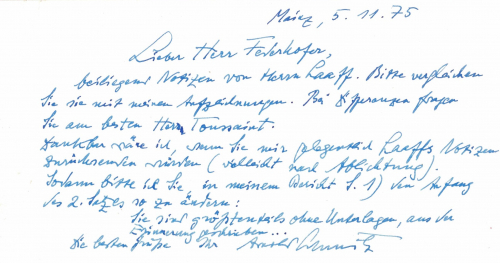 Mainz, 5.11.75
Lieber Herr Federhofer,
beiliegend Notizen von Herrn Laaff. Bitte vergleichen
Sie sie mit meinen Aufzeichnungen. Bei Differenzen fragen
Sie am besten Herrn Toussaint.
Dankbar wäre ich, wenn Sie mir gelegentlich Laaffs Notizen
zurücksenden würden (vielleicht nach Ablichtung).
Sodann bitte ich Sie in meinem Bericht S. 1) den Anfang
des 2. Satzes so zu ändern:
Sie sind größtenteils ohne Unterlagen, aus der
Erinnerung geschrieben...
Die besten Grüße Ihr Arnold Schmitz